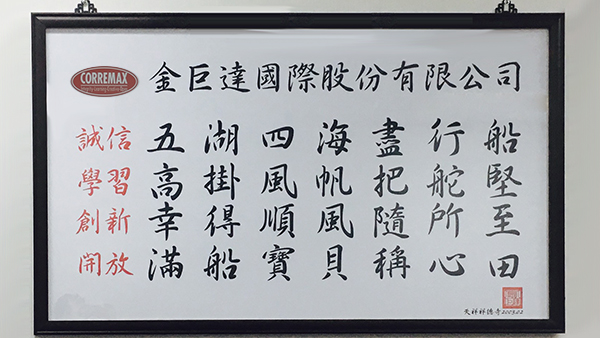 CORREMAX
金巨達國際股份有限公司
誠信
學習
創新
開放
五湖四海盡行船
高掛風帆把舵堅
幸得順風隨所至
滿船寶貝稱心田
天祥祥德寺2003.02